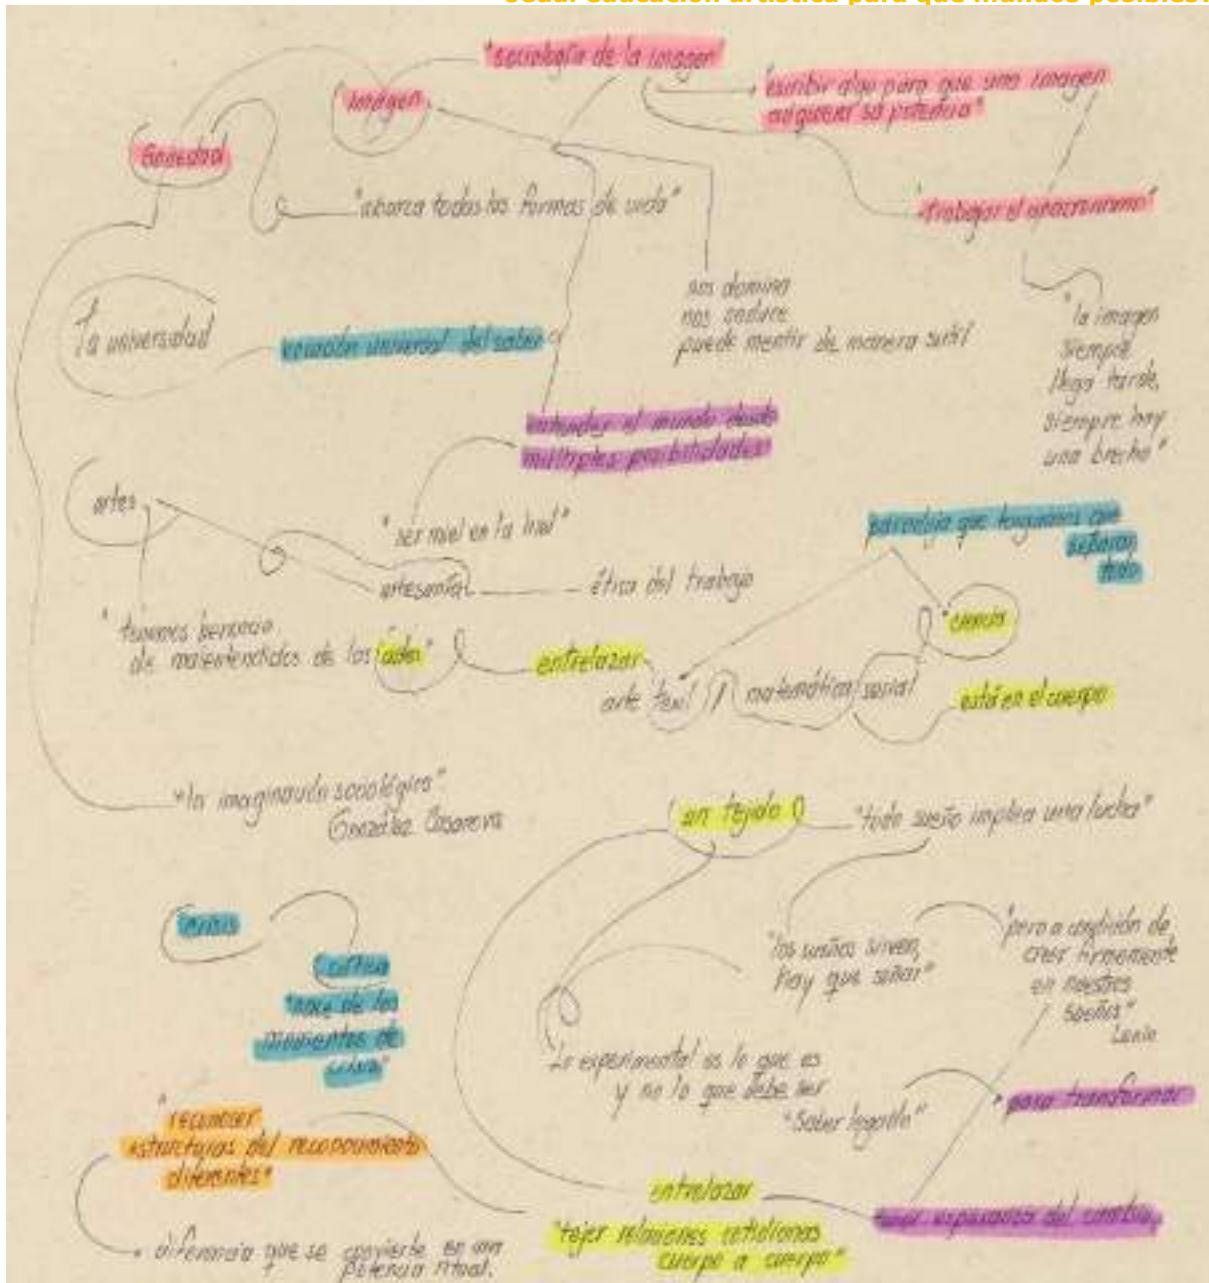 educación artística para qué mundos posibles?
"sociología de la imagen"
imagen
"escribir algo para que una imagen
adquiera su potencia"
Sociedad
"abarca todas las formas de vida"
"trabajar el anacronismo"
nos domina
nos seduce
puede mentir de manera sutil
"la imagen
siempre
llega tarde,
siempre hay
una brecha"
la universidad
universal del saber
entender el mundo desde
múltiples posibilidades
artes
"ser miel en la
artesanal
ética del trabajo
paradoja que tengamos que
separar
todo
"tenemos herencia
de malentendidos de las artes"
entrelazar
arte textil
matemática social
ciencia
está en el cuerpo
"la imaginación sociológica"
González Casanova
un tejido
"todo sueño implica una lucha"
crisis
crítica
"nace de los
momentos de
crisis"
"los sueños sirven,
hay que soñar"
"pero a condición de
creer firmemente
en nuestros
sueños"
Lenin
Lo experimental es lo que es
y no lo que debe ser
"Saber legado"
para transformar
"reconocer
estructuras del reconocimiento
diferentes"
entrelazar
"tejer relaciones cotidianas
cuerpo a cuerpo"
tener esperanza del cambio
diferencia que se convierte en una
potencia ritual.